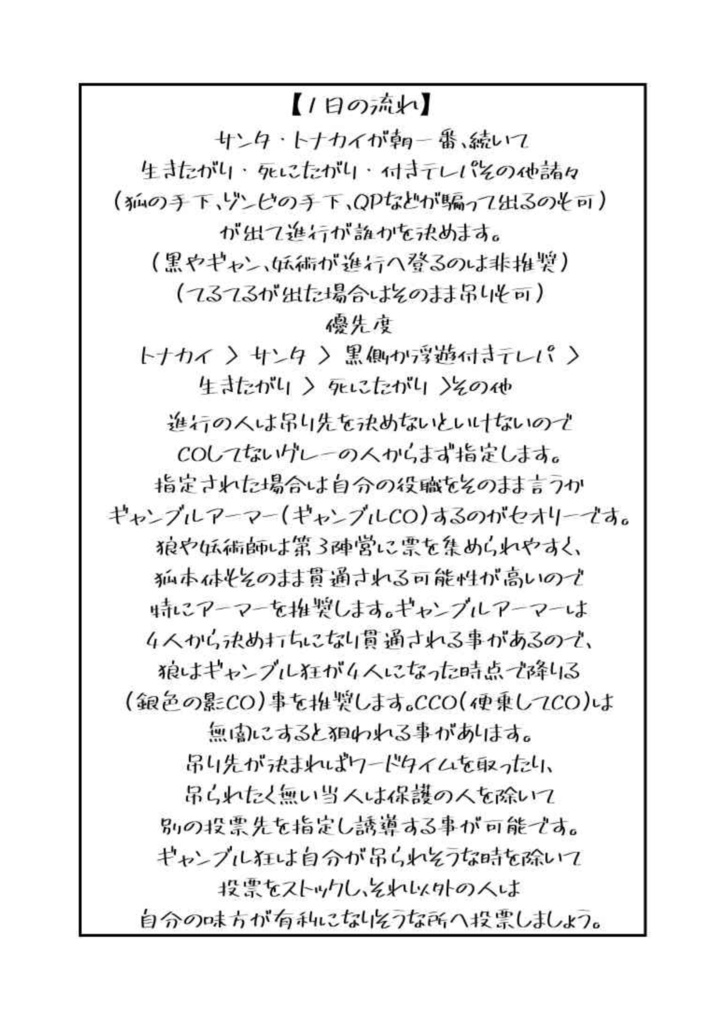 【1日の流れ】
サンタ・トナカイが朝一番、続いて
生きたがり・死にたがり・付きテレパその他諸々
(狐の手下、ゾンビの手下、QPなどが騙って出るのも可)
が出て進行が誰かを決めます。
(黒やギャン、妖術が進行へ登るのは非推奨)
(てるてるが出た場合はそのまま吊りも可)
優先度
トナカイ > サンタ > 黒側か浮遊付きテレパ >
生きたがり > 死にたがり >その他
進行の人は吊り先を決めないといけないので
COしてないグレーの人からまず指定します。
指定された場合は自分の役職をそのまま言うか
ギャンブルアーマー(ギャンブルCO)するのがセオリーです。
狼や妖術師は第3陣営に票を集められやすく、
狐本体もそのまま貫通される可能性が高いので
特にアーマーを推奨します。ギャンブルアーマーは
4人から決め打ちになり貫通される事があるので、
狼はギャンブル狂が4人になった時点で降りる
(銀色の影CO)事を推奨します。CCO(便乗してCO)は
無闇にすると狙われる事があります。
吊り先が決まればワードタイムを取ったり、
吊られたく無い当人は保護の人を除いて
別の投票先を指定し誘導する事が可能です。
ギャンブル狂は自分が吊られそうな時を除いて
投票をストックし、それ以外の人は
自分の味方が有利になりそうな所へ投票しましょう。